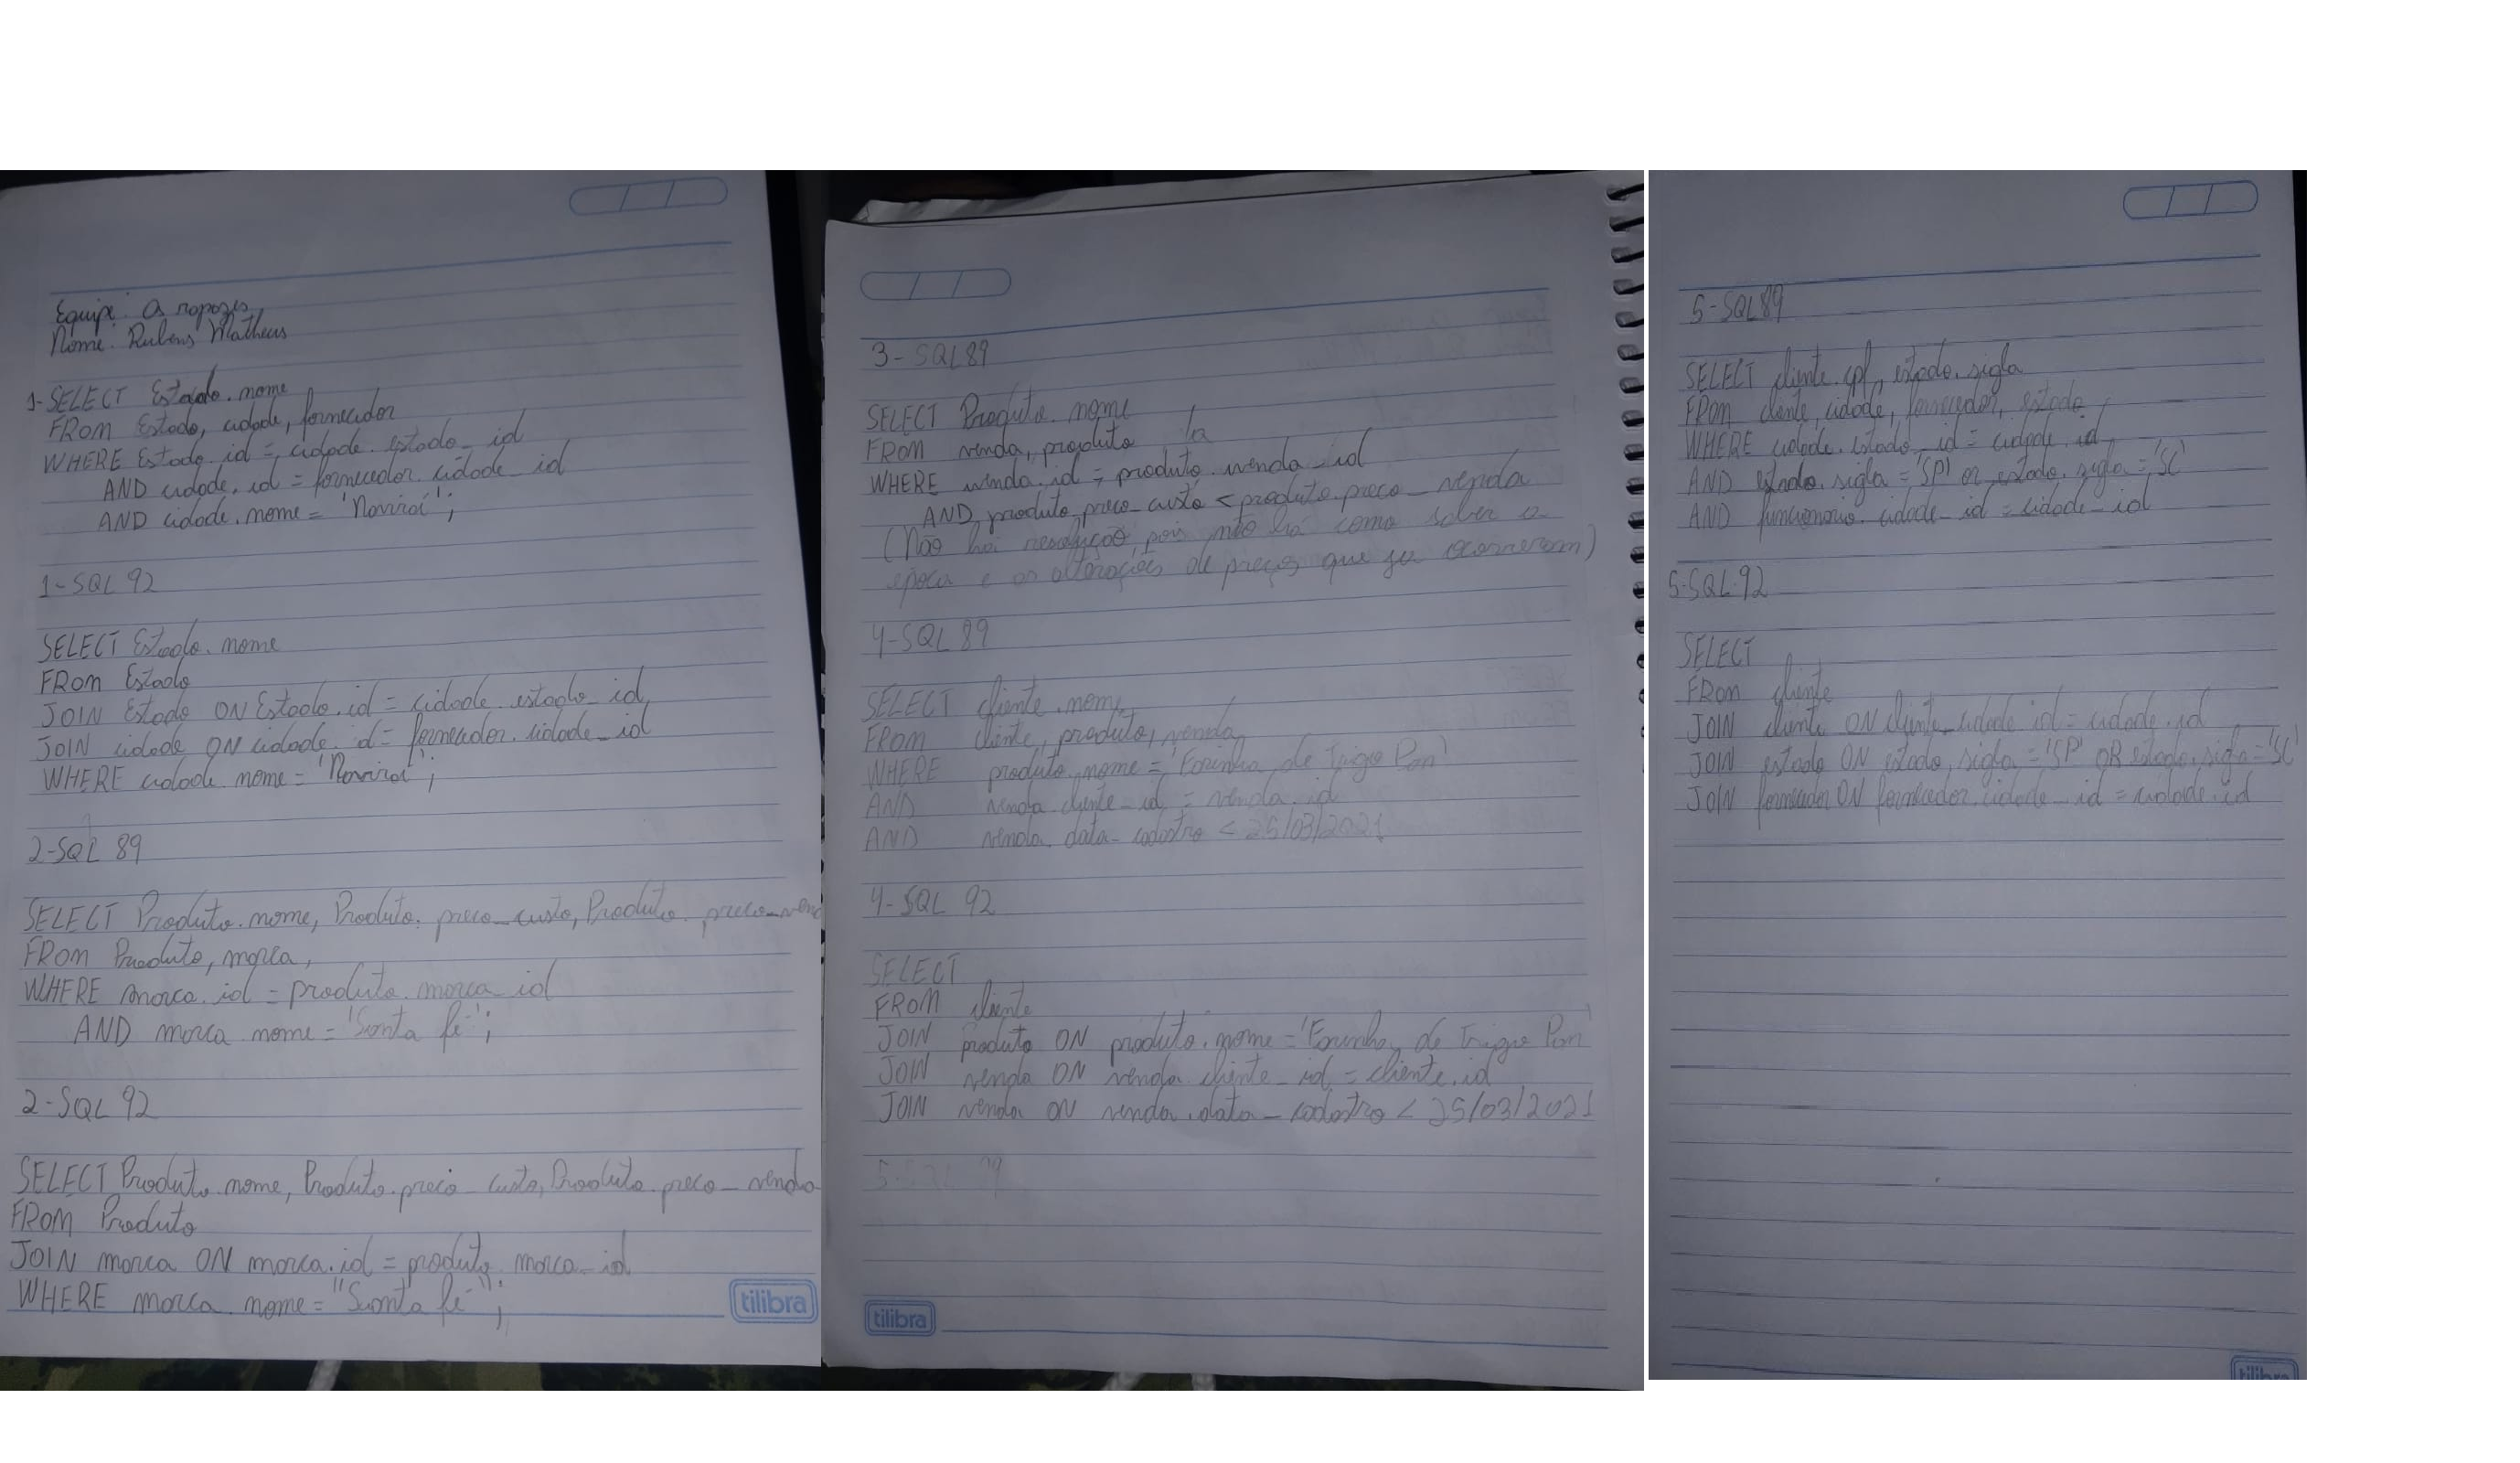 Equipe: Os rapazes
Nome: Rubens Matheus
1-SELECT Estado.nome
FROM Estado, cidade, fornecedor
WHERE Estado.id = cidade.estado_id
AND cidade.id = fornecedor.cidade_id
AND cidade.nome = 'Naviraí';
1-SQL 92
SELECT Estado.nome
FROM Estado
JOIN Estado ON Estado.id = cidade.estado_id
JOIN cidade ON cidade.id = fornecedor.cidade_id
WHERE cidade.nome = 'Naviraí';
2-SQL 89
SELECT Produto.nome, Produto.preco_custo, Produto.preco_vend
FROM Produto, marca,
WHERE marca.id = produto.marca_id
AND marca.nome = 'Santa fé';
2-SQL 92
SELECT Produto.nome, Produto.preco_custo, Produto.preco_venda
FROM Produto
JOIN marca ON marca.id = produto.marca_id
WHERE marca.nome = "Santa fé";
tilibra
3-SQL89
SELECT Produto.nome
FROM venda, produto
WHERE venda.id = produto.venda_id
AND produto.preco_custo < produto.preco_venda
(Não há resolução, pois não há como saber a
época e as alterações de preços que já ocorreram)
4-SQL 89
SELECT cliente.nome,
FROM cliente, produto, venda
WHERE produto.nome = 'Farinha de Trigo Pan'
AND venda.cliente_id = venda.id
AND venda.data_cadastro < 25/03/2021
4-SQL 92
SELECT
FROM cliente
JOIN produto ON produto.nome = 'Farinha de Trigo Pan'
JOIN venda ON venda.cliente_id = cliente.id
JOIN venda ON venda.data_cadastro < 25/03/2021
tilibra
5-SQL89
SELECT cliente.cpf, estado.sigla
FROM cliente, cidade, fornecedor, estado
WHERE cidade.estado_id = cidade.id
AND estado.sigla = 'SP' or estado.sigla = 'SC'
AND funcionario.cidade_id = cidade_id
5-SQL 92
SELECT
FROM cliente
JOIN cliente ON cliente_cidade.id = cidade.id
JOIN estado ON estado.sigla = 'SP' OR estado.sigla = 'SC'
JOIN fornecedor ON fornecedor.cidade_id = cidade.id
tilibra